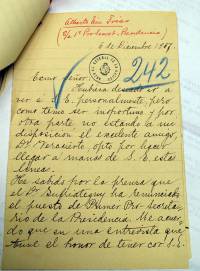 Alberto
6 de Diciembre 1937.
242
Como señor:
Hubiera deseado ir a
ver a S. E. personalmente, pero
como temo ser inoportuno y por
otra parte no estando a mi
disposición el excelente amigo,
Dr. opto por hacer
llegar a manos de S. E. estas
líneas.
He sabido por la prensa que
el Dr. ha renunciado
el puesto de Primer Pro-Secreta-
rio de la Presidencia. Me acuer-
do que en una entrevista que
tuve el honor de tener con S. E.